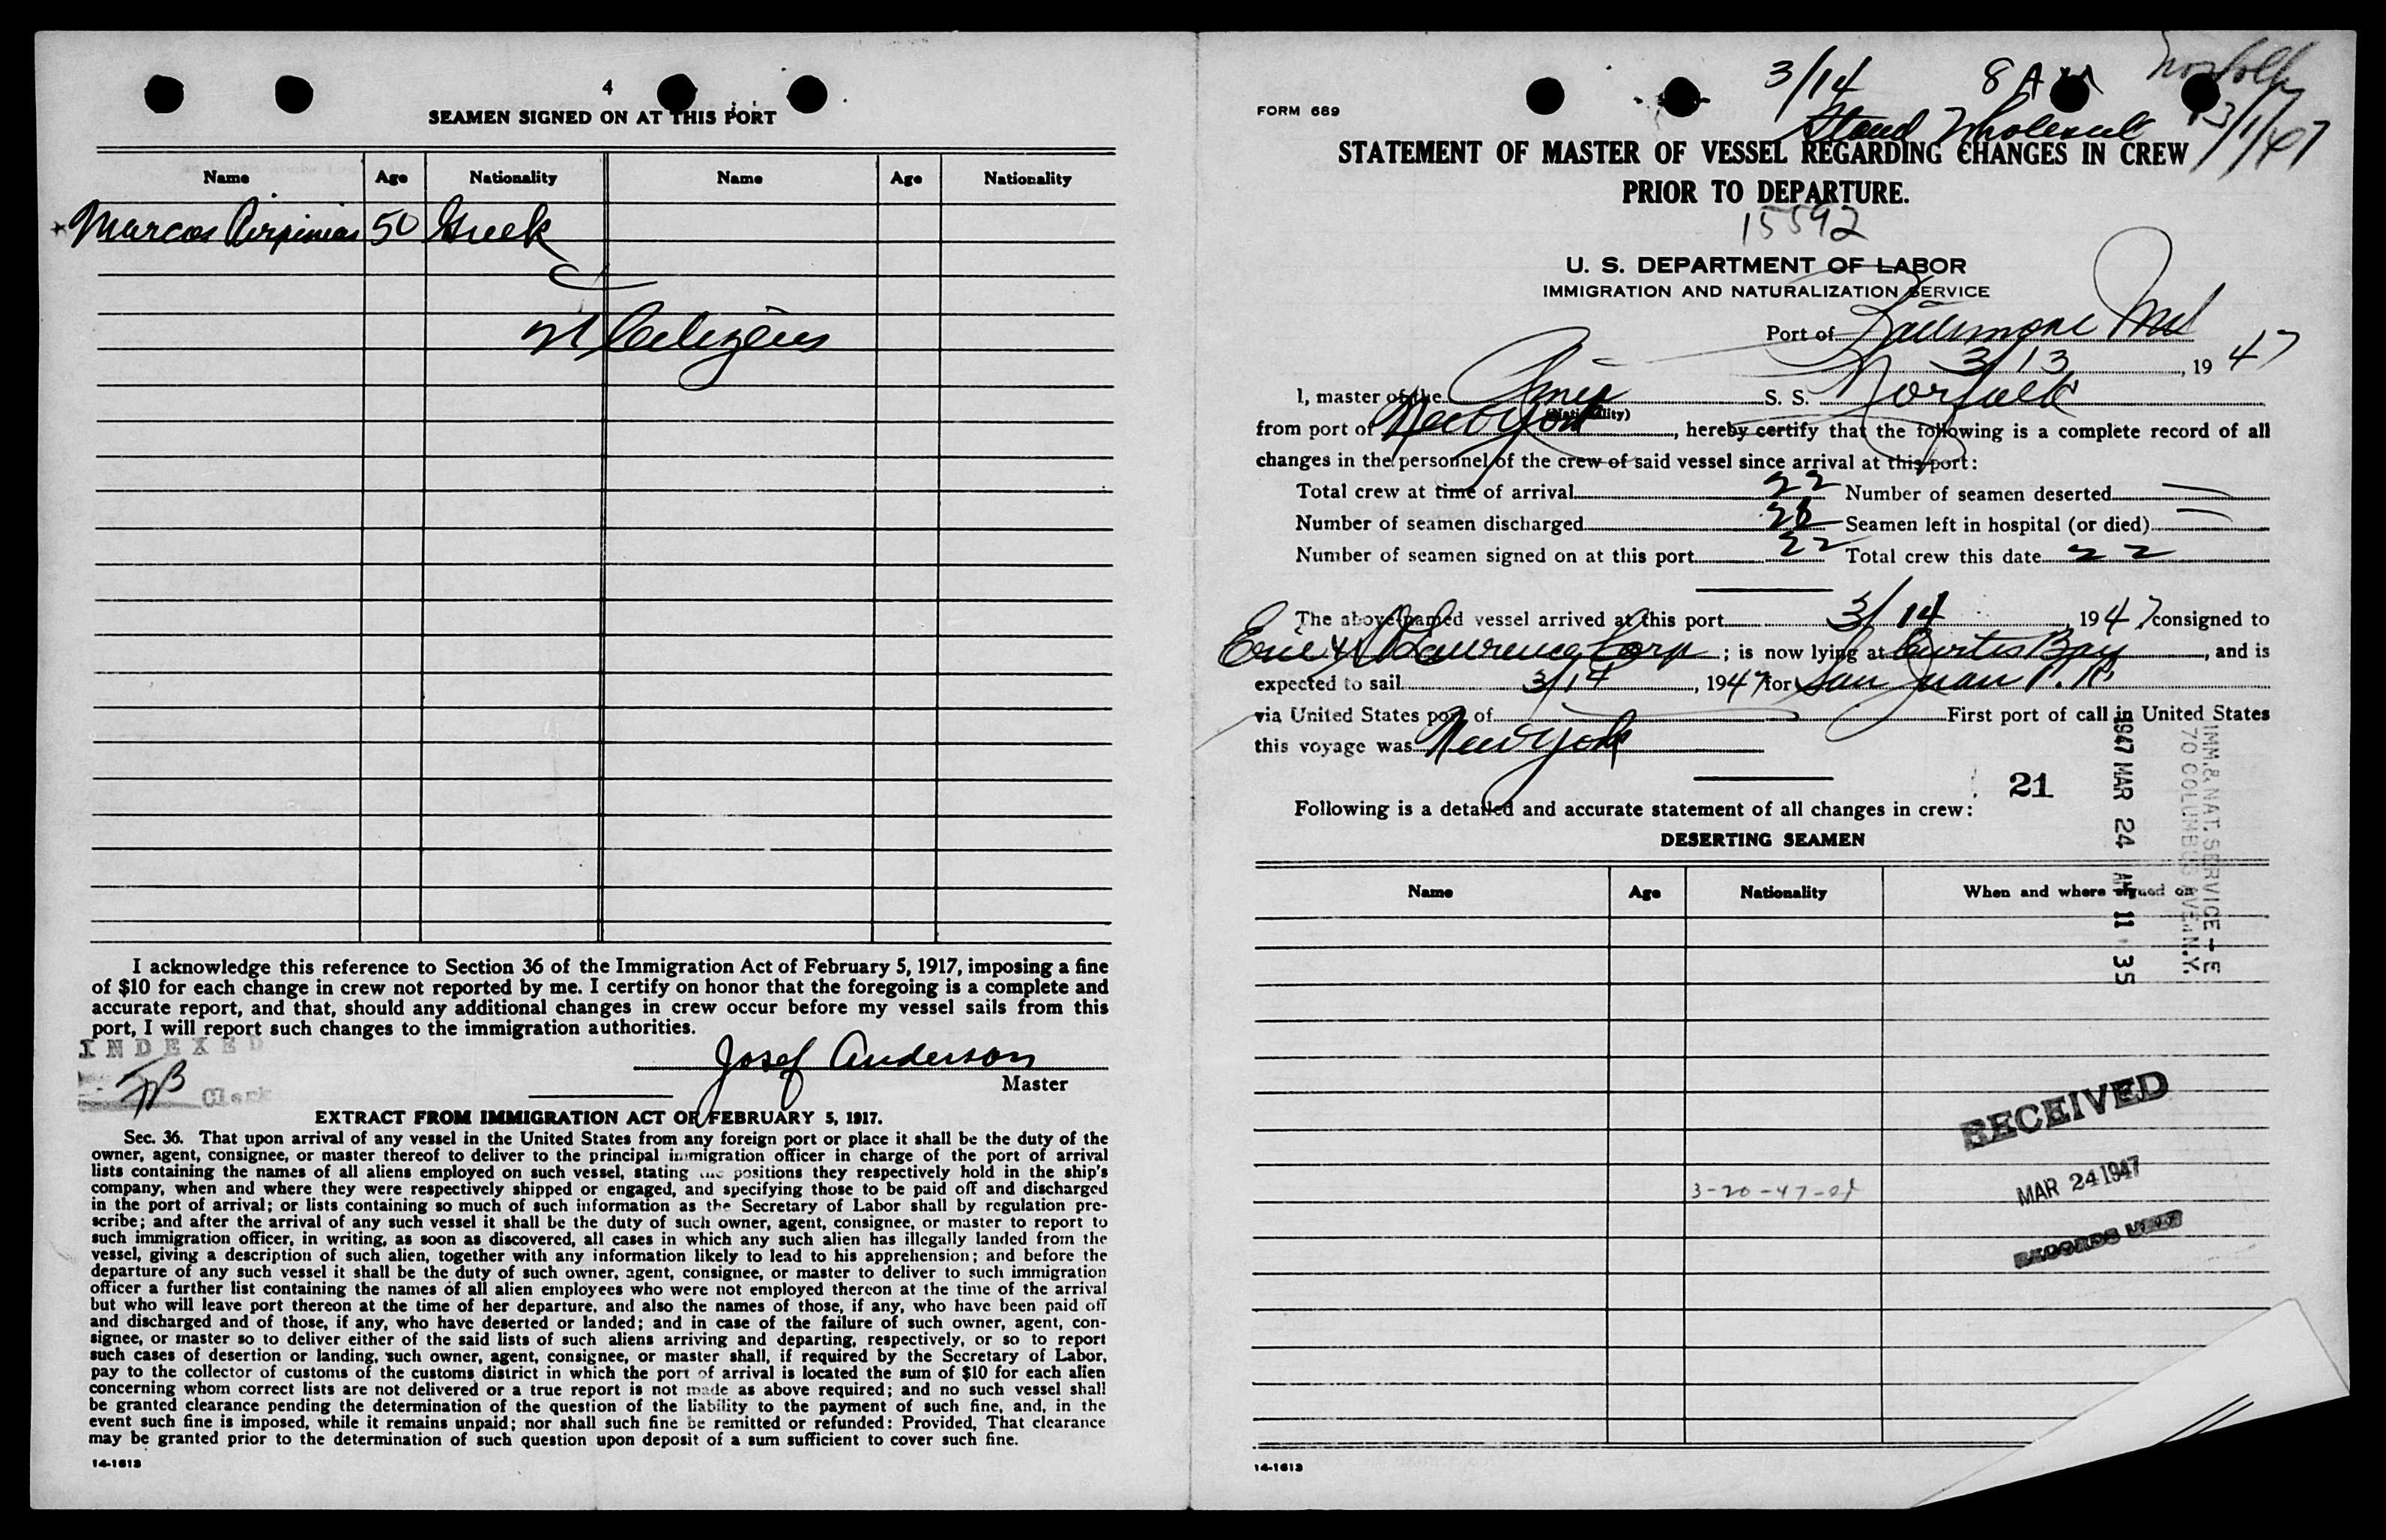 4
SEAMEN SIGNED ON AT THIS PORT
Name Age Nationality Name Age Nationality
Marcos 50 Greek
21 Citizens
I acknowledge this reference to Section 36 of the Immigration Act of February 5, 1917, imposing a fine
of $10 for each change in crew not reported by me. I certify on honor that the foregoing is a complete and
accurate report, and that, should any additional changes in crew occur before my vessel sails from this
port, I will report such changes to the immigration authorities.
INDEXED
Clerk
Josef Anderson
Master
EXTRACT FROM IMMIGRATION ACT OF FEBRUARY 5, 1917.
Sec. 36. That upon arrival of any vessel in the United States from any foreign port or place it shall be the duty of the
owner, agent, consignee, or master thereof to deliver to the principal immigration officer in charge of the port of arrival
lists containing the names of all aliens employed on such vessel, stating the positions they respectively hold in the ship's
company, when and where they were respectively shipped or engaged, and specifying those to be paid off and discharged
in the port of arrival; or lists containing so much of such information as the Secretary of Labor shall by regulation pre-
scribe; and after the arrival of any such vessel it shall be the duty of such owner, agent, consignee, or master to report to
such immigration officer, in writing, as soon as discovered, all cases in which any such alien has illegally landed from the
vessel, giving a description of such alien, together with any information likely to lead to his apprehension; and before the
departure of any such vessel it shall be the duty of such owner, agent, consignee, or master to deliver to such immigration
officer a further list containing the names of all alien employees who were not employed thereon at the time of the arrival
but who will leave port thereon at the time of her departure, and also the names of those, if any, who have been paid off
and discharged and of those, if any, who have deserted or landed; and in case of the failure of such owner, agent, con-
signee, or master so to deliver either of the said lists of such aliens arriving and departing, respectively, or so to report
such cases of desertion or landing, such owner, agent, consignee, or master shall, if required by the Secretary of Labor,
pay to the collector of customs of the customs district in which the port of arrival is located the sum of $10 for each alien
concerning whom correct lists are not delivered or a true report is not made as above required; and no such vessel shall
be granted clearance pending the determination of the question of the liability to the payment of such fine, and, in the
event such fine is imposed, while it remains unpaid; nor shall such fine be remitted or refunded: Provided, That clearance
may be granted prior to the determination of such question upon deposit of a sum sufficient to cover such fine.
14-1613
3/14 8 AM Norfolk
FORM 689
STATEMENT OF MASTER OF VESSEL REGARDING CHANGES IN CREW
PRIOR TO DEPARTURE.
15592
U. S. DEPARTMENT OF LABOR
IMMIGRATION AND NATURALIZATION SERVICE
Port of Baltimore Md
3/13, 19 47
I, master of the Amer S. S. Norfolk
(Nationality)
from port of New York, hereby certify that the following is a complete record of all
changes in the personnel of the crew of said vessel since arrival at this port:
Total crew at time of arrival 22 Number of seamen deserted —
Number of seamen discharged Seamen left in hospital (or died) —
Number of seamen signed on at this port 22 Total crew this date 22
The above-named vessel arrived at this port 3/14 1947 consigned to
Erie & St Lawrence Corp; is now lying at Curtis Bay, and is
expected to sail 3/14, 1947 for San Juan P. R.
via United States port of — First port of call in United States
this voyage was New York
21
Following is a detailed and accurate statement of all changes in crew:
DESERTING SEAMEN
Name Age Nationality When and where signed on
IMM. & NAT. SERVICE - E
70 COLUMBUS AVE., N.Y.
1947 MAR 24 AM 11 35
RECEIVED
MAR 24 1947
RECORDS UNIT
3-20-47
14-1613